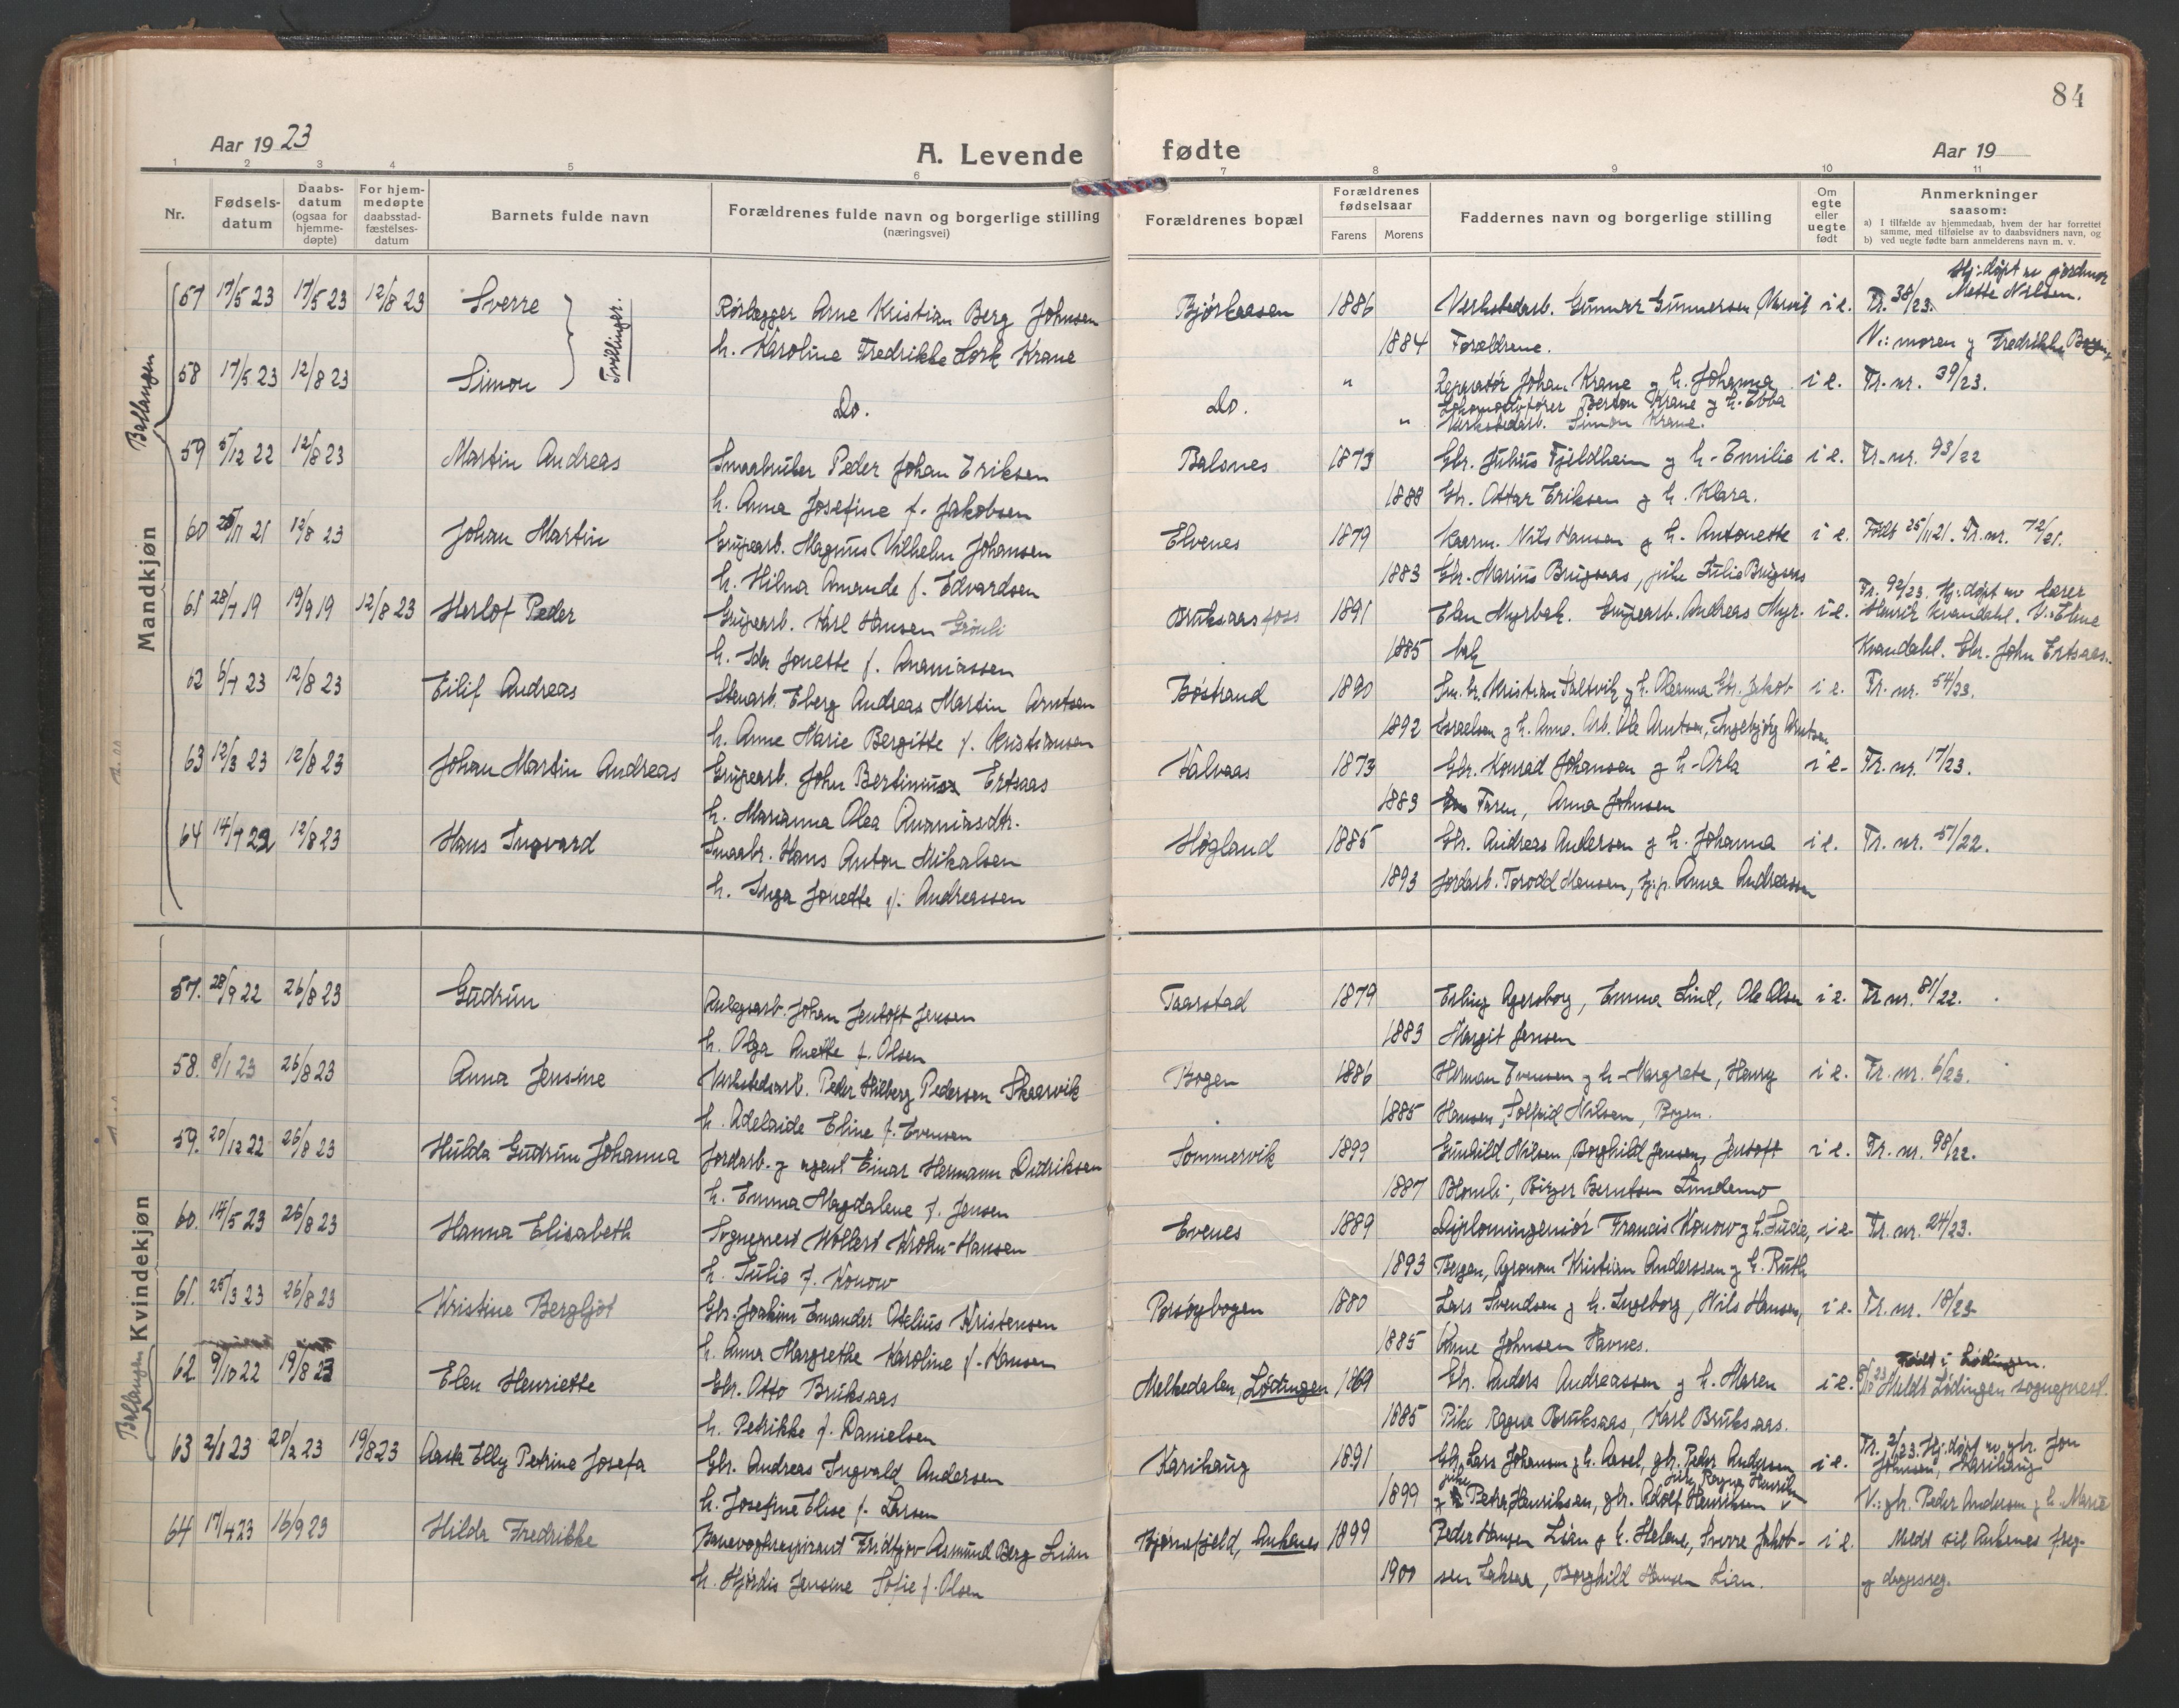 84
Aar 1923
A. Levende fødte
Aar 19
1 2 3 4 5 6 7 8 9 10 11
Nr.
Fødsels-datum
Daabs-datum (ogsaa for hjemme-døpte)
For hjem-medøpte daabsstad-fæstelses-datum
Barnets fulde navn
Forældrenes fulde navn og borgerlige stilling (næringsvei)
Forældrenes bopæl
Forældrenes fødselsaar
Farens Morens
Faddernes navn og borgerlige stilling
Om egte eller uegte født
Anmerkninger saasom:
a) I tilfælde av hjemmedaab, hvem der har forrettet samme, med tilføielse av to daabsvidners navn, og
b) ved uegte fødte barn anmelderens navn m. v.
Mandkjøn
Ballangen
57 17/5 23 17/5 23 12/8 23 Sverre
Tvillinger.
Rørlægger Arne Kristian Berg Johnsen
h. Karoline Fredrikke Lork Krane
Bjørkaasen 1886 1884
Verkstedarb. Gunnar Gunnersen, Narvik
Forældrene.
i e. Tr. 38/23. Hj: døpt av jordmor Mette Nilsen.
V.: moren og Fredrikke
58 17/5 23 12/8 23 Simon
Do. Do. " "
Reparatør Johan Krane og h. Johanna
Lokomotivfører Berton Krane og h. Ebba
Verkstedarb. Simon Krane.
i e. Tr. nr. 39/23.
59 5/12 22 12/8 23 Martin Andreas
Smaabruker Peder Johan Eriksen
h. Anna Josefine f. Jakobsen
Balsnes 1873 1888
Gbr. Julius Fjeldheim og h. Emilie
Gbr. Ottar Eriksen og h. Klara.
i e. Tr. nr. 93/22
60 25/11 21 12/8 23 Johan Martin
Grubearb. Magnus Vilhelm Johansen
h. Hilma Amande f. Edvardsen
Elvenes 1879 1883
Kaarm. Nils Hansen og h. Antonette
Gbr. Marius Brugsaas, pike Julie Brugsaas
i e. Født 25/11 21. Tr. nr. 72/21.
61 28/7 19 19/9 19 12/8 23 Herlof Peder
Grubearb. Karl Hansen Grønli
h. Ida Jonette f. Ananiassen
Bruksaasfoss 1891 1885
Elen Myrbak. Grubearb. Andreas Myr-
bak
i e. Tr. 92/23. Hj: døpt av lærer
Henrik Kvandahl. V: Eline
Kvandahl. Gbr. John Ertsaas.
62 6/7 23 12/8 23 Eilif Andreas
Stenarb. Eberg Andreas Martin Arntsen
h. Anne Marie Bergitte f. Kristiansen
Bøstrand 1890 1892
Sm. br. Kristian Saltvik og h. Oleanna Gbr. Jakob
Esraelsen og h. Anna. Arb. Ole Arntsen, Ingebjørg Arntsen
i e. Tr. nr. 54/23.
63 12/3 23 12/8 23 Johan Martin Andreas
Grubearb. John Bertinius Ertsaas
h. Marianna Olea Ananiasdtr.
Kalvaas 1873 1883
Gbr. Konrad Johansen og h. Orla
Faren, Anna Johnsen
i e. Tr. nr. 17/23.
64 14/7 22 12/8 23 Hans Ingvard
Smaabr. Hans Anton Mikalsen
h. Inga Jonette f. Andreassen
Høgland 1885 1893
Gbr. Andreas Andersen og h. Johanna
Jordarb. Torodd Hansen, Anna Andreassen
i e. Tr. nr. 51/22.
Kvindekjøn
57. 28/9 22 26/8 23 Gudrun
Anlegsarb. Johan Jentoft Jensen
h. Olga Anette f. Olsen
Taarstad 1879 1883
Erling Agersborg, Emma Lind, Ole Olsen
Margit Jensen
i e. Tr. nr. 81/22.
58. 8/1 23 26/8 23 Anna Jensine
Verkstedsarb. Peder Hilberg Pedersen Skaarvik
h. Adelaide Eline f. Evensen
Bogen 1886 1885
Herman Evensen og h. Margrete, Henry
Hansen, Solfrid Nilsen, Bogen.
i e. Tr. nr. 6/23.
59. 20/12 22 26/8 23 Hulda Gudrun Johanna
Jordarb. og agent Einar Hermann Didriksen
h. Emma Magdalene f. Jensen
Sommervik 1899 1887
Gunhild Nilsen, Borghild Jensen, Jentoft
Blomli, Birger Berntsen Lundemo
i e. Tr. nr. 98/22.
60. 14/5 23 26/8 23 Hanna Elisabeth
Sogneprest Wollert Krohn-Hansen
h. Julie f. Konow
Evenes 1889 1893
Diplomingeniør Francis Konow og h. Lucie,
Bergen, Agronom Kristian Anderssen og h. Ruth
i e. Tr. nr. 24/23.
61. 25/3 23 26/8 23 Kristine Bergljot
Gbr. Joakim Emander Otelius Kristensen
h. Anna Margrethe Karoline f. Hansen
Porsøybogen 1880 1885
Lars Svendsen og h. Ingeborg, Nils Hansen,
Anne Johnsen Havnes.
i e. Tr. nr. 18/23.
Ballangen
62 9/10 22 19/8 23 Elen Henriette
Gbr. Otto Bruksaas
h. Petrikke f. Danielsen
Melkedalen, Lødingen 1869 1885
Gbr. Anders Andreassen og h. Maren
Pike Ragna Bruksaas, Karl Bruksaas.
i e. Født i Lødingen.
Meldt Lødingen sogneprest.
63 2/1 23 20/2 23 19/8 23 Aasta Elly Petrine Josefa
Gbr. Andreas Ingvald Andersen
h. Josefine Elise f. Larsen
Karihaug 1891 1899
Gbr. Lars Johansen og h. Aasel, gbr. Peder Andersen
og pike Petra Henriksen, gbr. Adolf Henriksen, pike Ragna Henriksen
i e. Tr. 2/23. Hj: døpt av gbr. Jon
Johnsen, Karihaug
V.: gbr. Peder Andersen og h. Marie
64 17/4 23 16/9 23 Hilda Fredrikke
Banevogteraspirant Fridtjov Asmund Berg Lian
h. Hjørdis Jensine Sofie f. Olsen
Bjørnefjeld, Ankenes 1899 1900
Peder Hansen Lian og h. Helene, Sverre Jakob-
sen Laksaa, Borghild Hansen Lian.
i e. Meldt til Ankenes
og dagsreg.